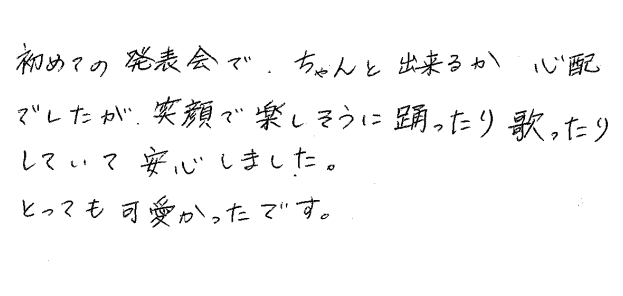 初めての発表会で、ちゃんと出来るか心配
でしたが、笑顔で楽しそうに踊ったり歌ったり
していて安心しました。
とっても可愛かったです。